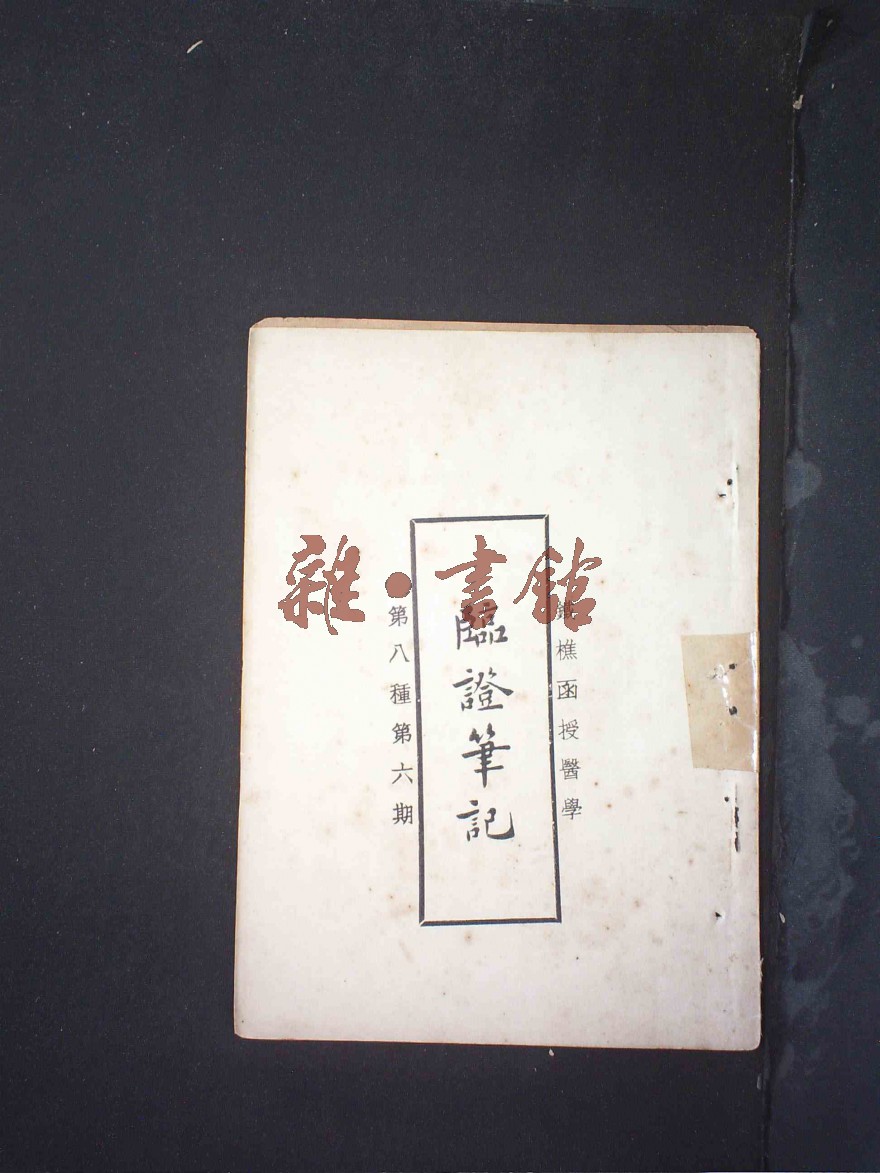 雜·書館
鐵樵函授醫學
臨證筆記
第八種第六期